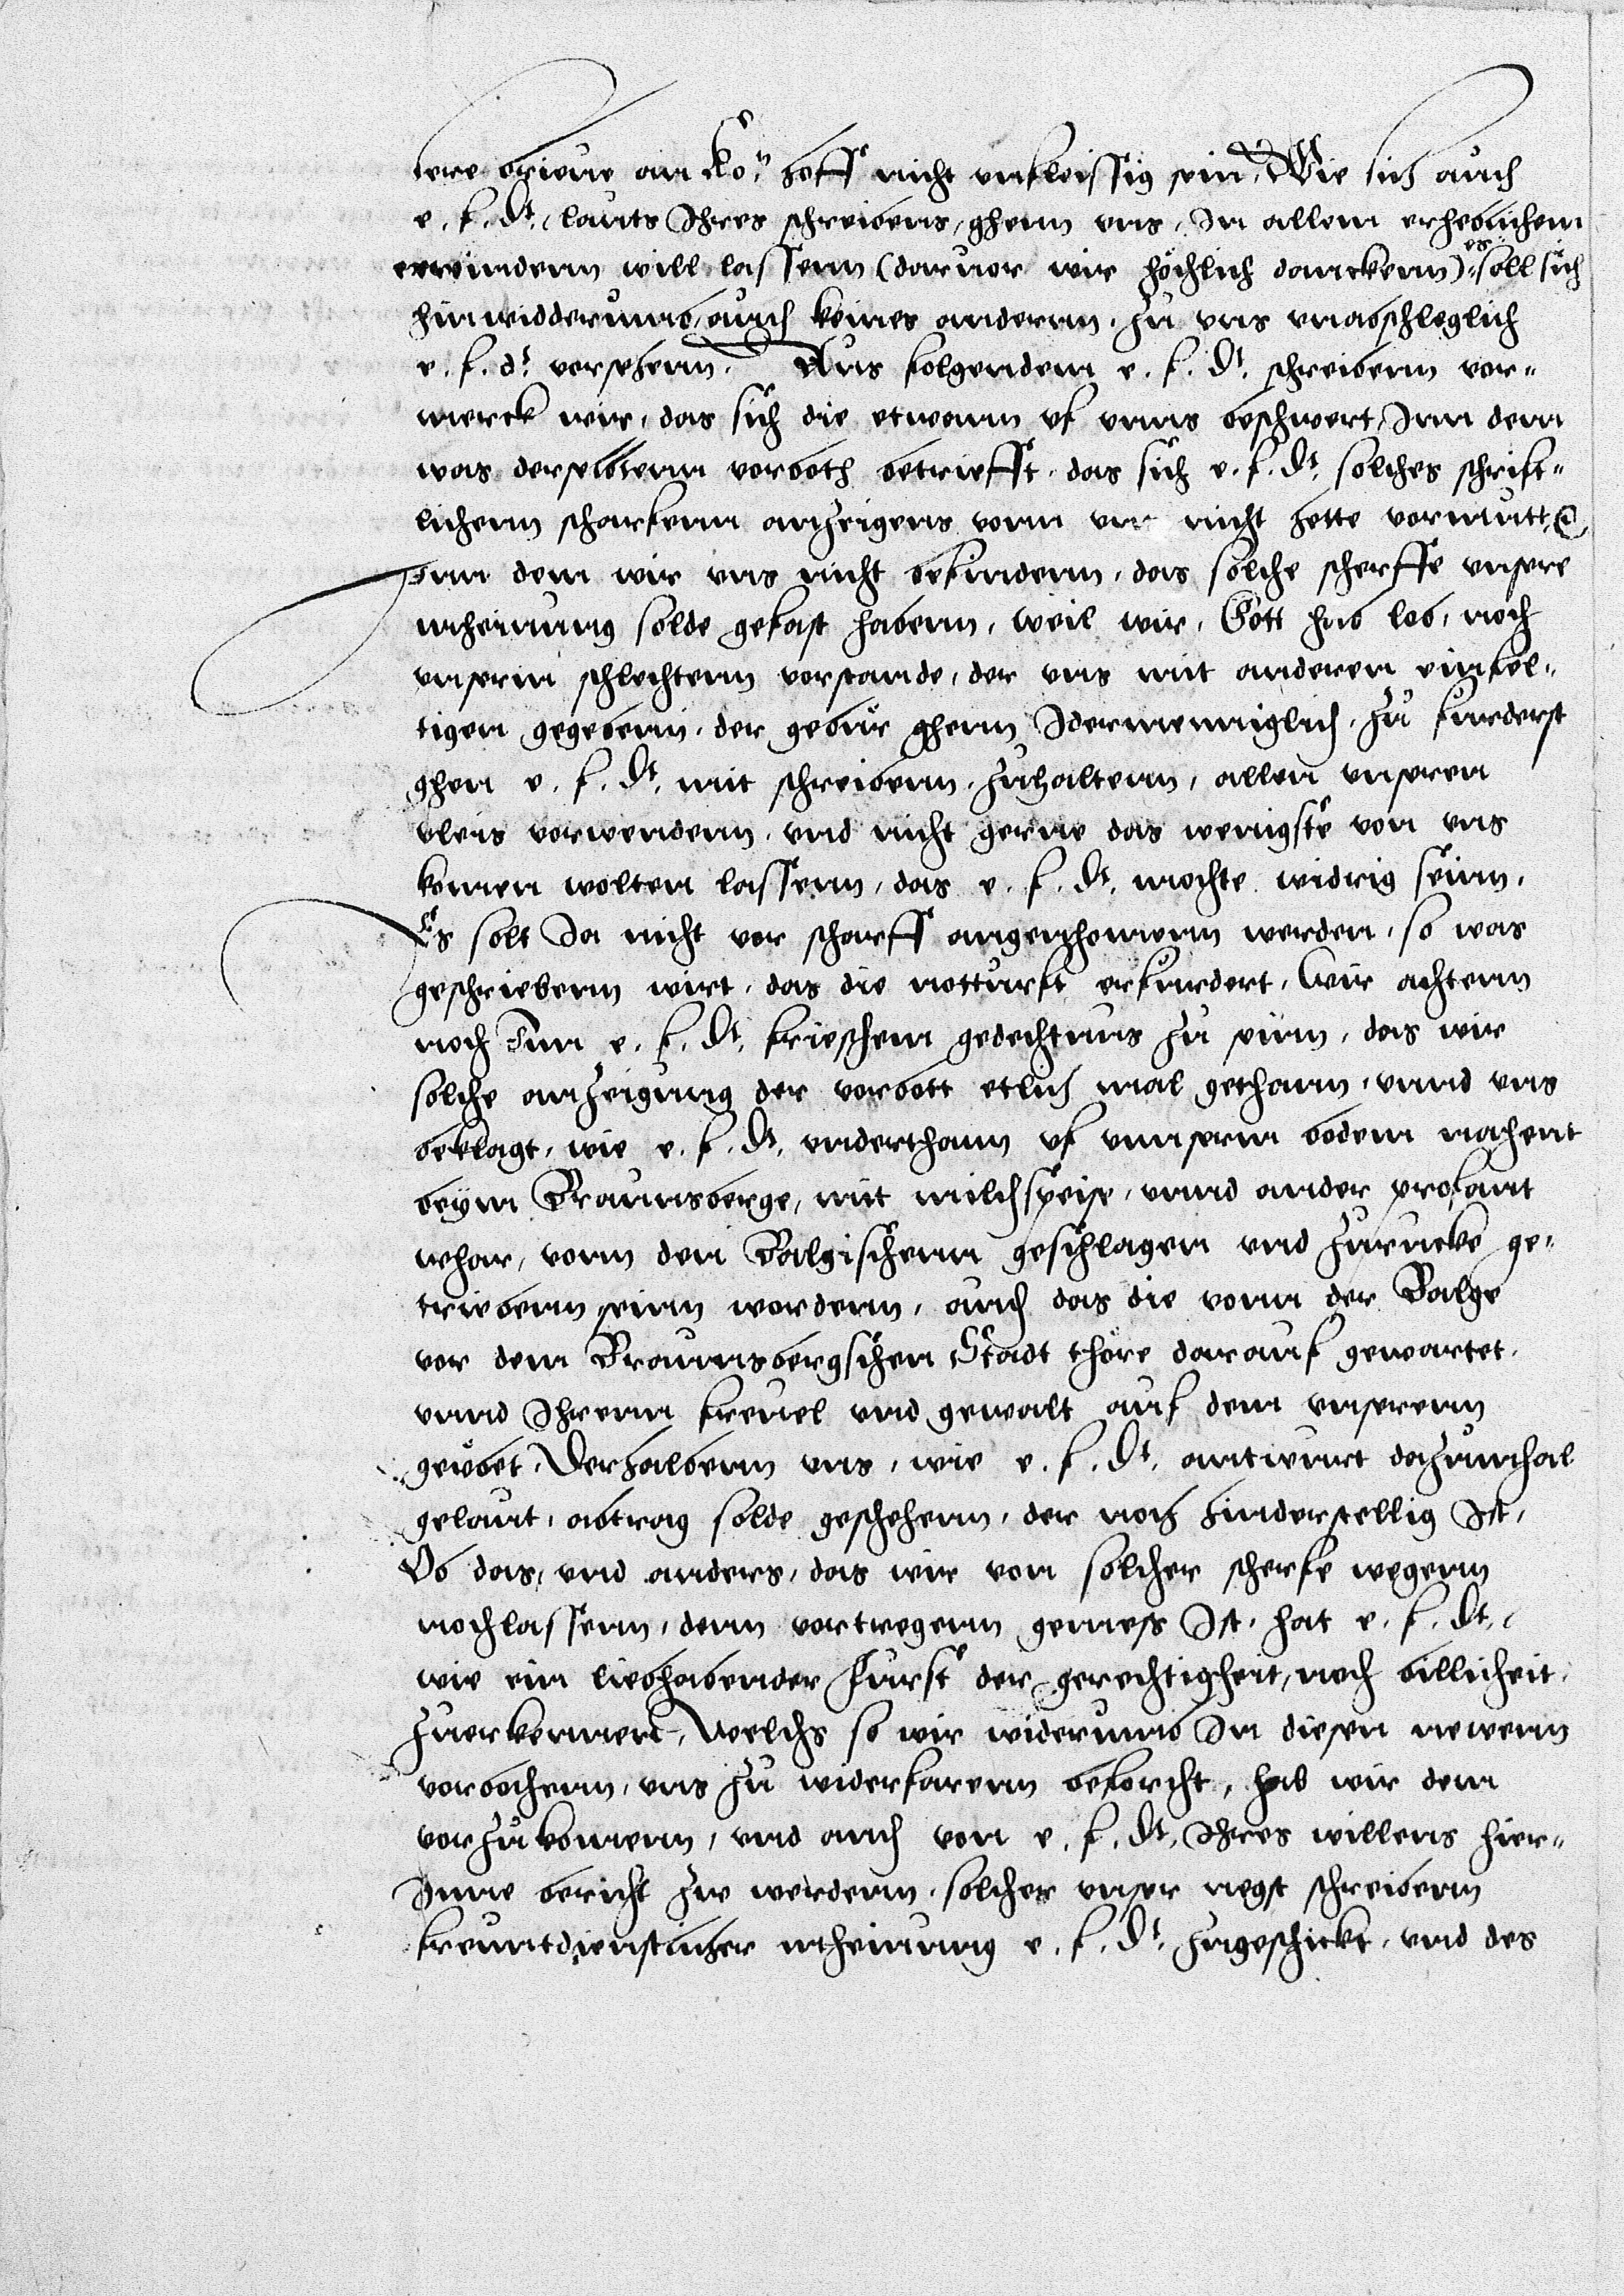 tere brieue an Kö: hoff nicht vnfleissig sein. Wie sich auch
e. f. Dt. lauts Ihres schreibens, ghenn vns, In allem erheblichem
erwindenn will lassenn (daruor wir höchlich danckenn) es soll sich
hinwidderumb, auch keines andernn, zu vns vnabschleglich
e. f. dt. versehenn. Aus folgendem e. f. Dt. schreibenn vor-
merck wir, das sich die etwann vf vnns beschwert, Inn dem
was derselbtenn vorboth betriefft, das sich e. f. Dt. solches schrift-
lichenn scharfenn anzeigens vonn vns nicht hette vormutt.
Inn dem wir vns nicht befindenn, das solche scherffe vnsere
meinung solde gefast habenn, weil wir, Gott hab lob, noch
vnserm schlechtenn vorstande, der vns mit anderen einfel-
tigen gegebenn, der gebür ghenn Idermenniglich, zu furderst
ghen e. f. Dt. mit schreibenn, zuhaltenn, allen vnseren
vleis vorwendenn, vnd nicht gerne das wenigste von vns
komen wolten lassenn, das e. f. Dt. mochte widrig seinn.
Es solt Ja nicht vor scharff angenhomenn werden, so was
geschriebenn wirt, das die notturft erfurdert, Wir achtenn
noch Inn e. f. Dt. frieschem gedechtnus zu seinn, das wir
solche anzeigung der vorbott etlich mal gethann, vnnd vns
beklagt, wie e. f. Dt. vnderthann vf vnnserm bodem nahent
beym Braunsberge, mit milchspeise, vnnd ander profant
whar, vonn den Balgischenn geschlagen vnd zurucke ge-
triebenn seinn wordenn, auch das die vonn der Balge
vor dem Braunsbergschen Stadt thöre darauf gewartet,
vnnd Ihrenn freuel vnd gewalt auf dem vnserenn
geübet, Derhalbenn vns, wie e. f. Dt. antwurt dazumhal
gelaut, abtrag solde geschehenn, der noch hinderstellig Ist,
Ob das, vnd anders, das wir von solcher scherfe wegenn
nochlassenn, denn vortregenn gemess Ist, hat e. f. Dt.
wie ein liebhabender Furst der gerechtigheit, noch billicheit,
zuerkennen, Welchs so wir widerumb In diesen newenn
vorbothenn, vns zu widerfarenn beforcht, hab wir dem
vorzukomenn, vnd auch von e. f. Dt. Ihres willens hier-
Inne bericht zu werdenn, solches vnser negst schreibenn
freuntdienstlicher meinung e. f. Dt. zugeschickt, vnd des